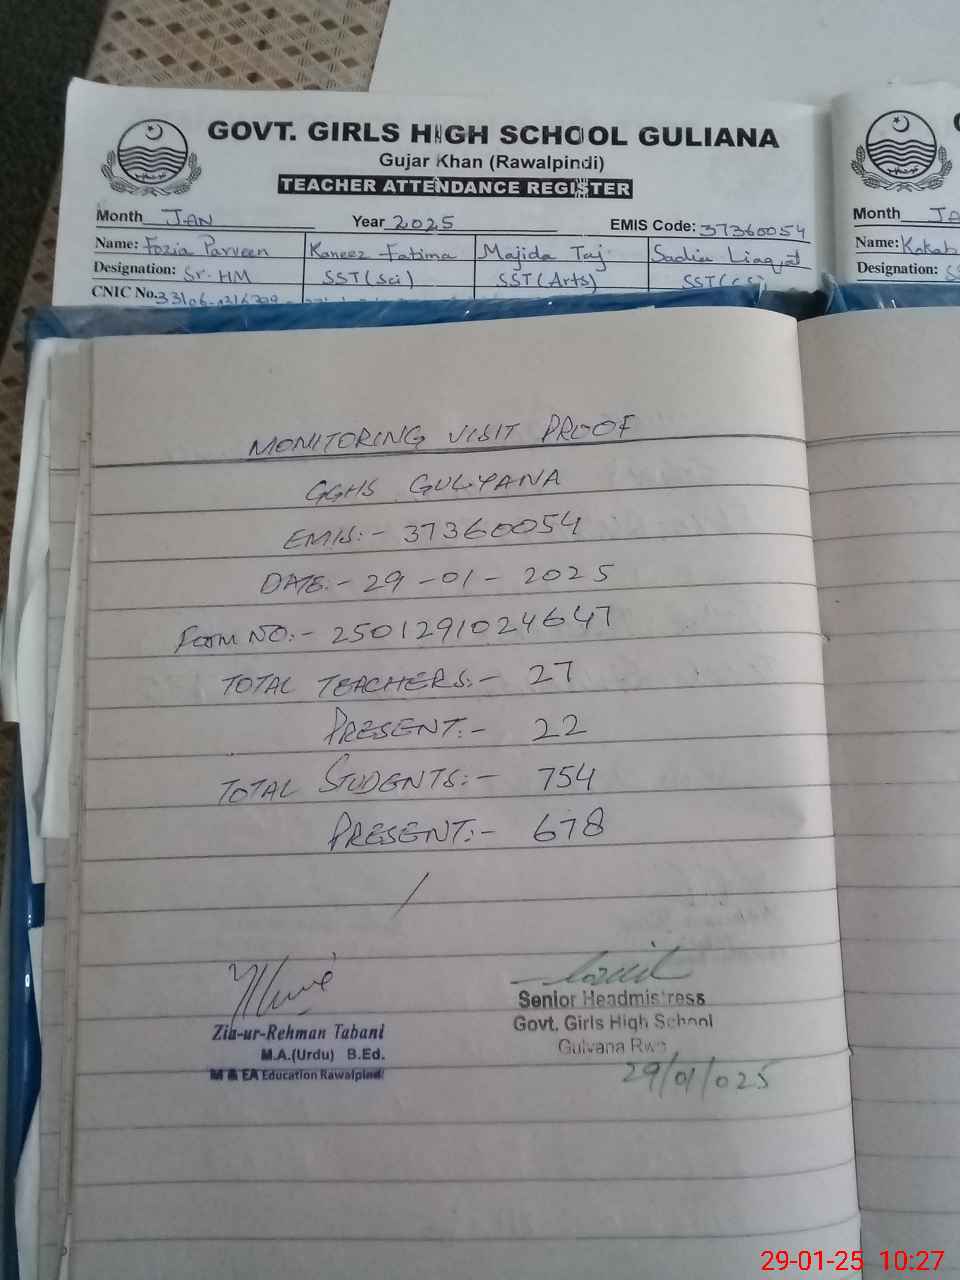 GOVT. GIRLS HIGH SCHOOL GULIANA
Gujar Khan (Rawalpindi)
TEACHER ATTENDANCE REGISTER
Month JAN Year 2025 EMIS Code: 37360054
Name: Fozia Parveen Kaneez Fatima Majida Taj Sadia Liaqat
Designation: Sr. HM SST (Sci) SST (Arts) SST (CS)
CNIC No.
Month JA
Name: Kokab
Designation:
MONITORING VISIT PROOF
GGHS GULYANA
EMIS:- 37360054
DATE:- 29-01-2025
FORM NO:- 2501291024647
TOTAL TEACHERS:- 27
PRESENT:- 22
TOTAL STUDENTS:- 754
PRESENT:- 678
Zia-ur-Rehman Tabani
M.A.(Urdu) B.Ed.
M & EA Education Rawalpindi
Senior Headmistress
Govt. Girls High School
Gulyana Rwp
29/01/025
29-01-25 10:27